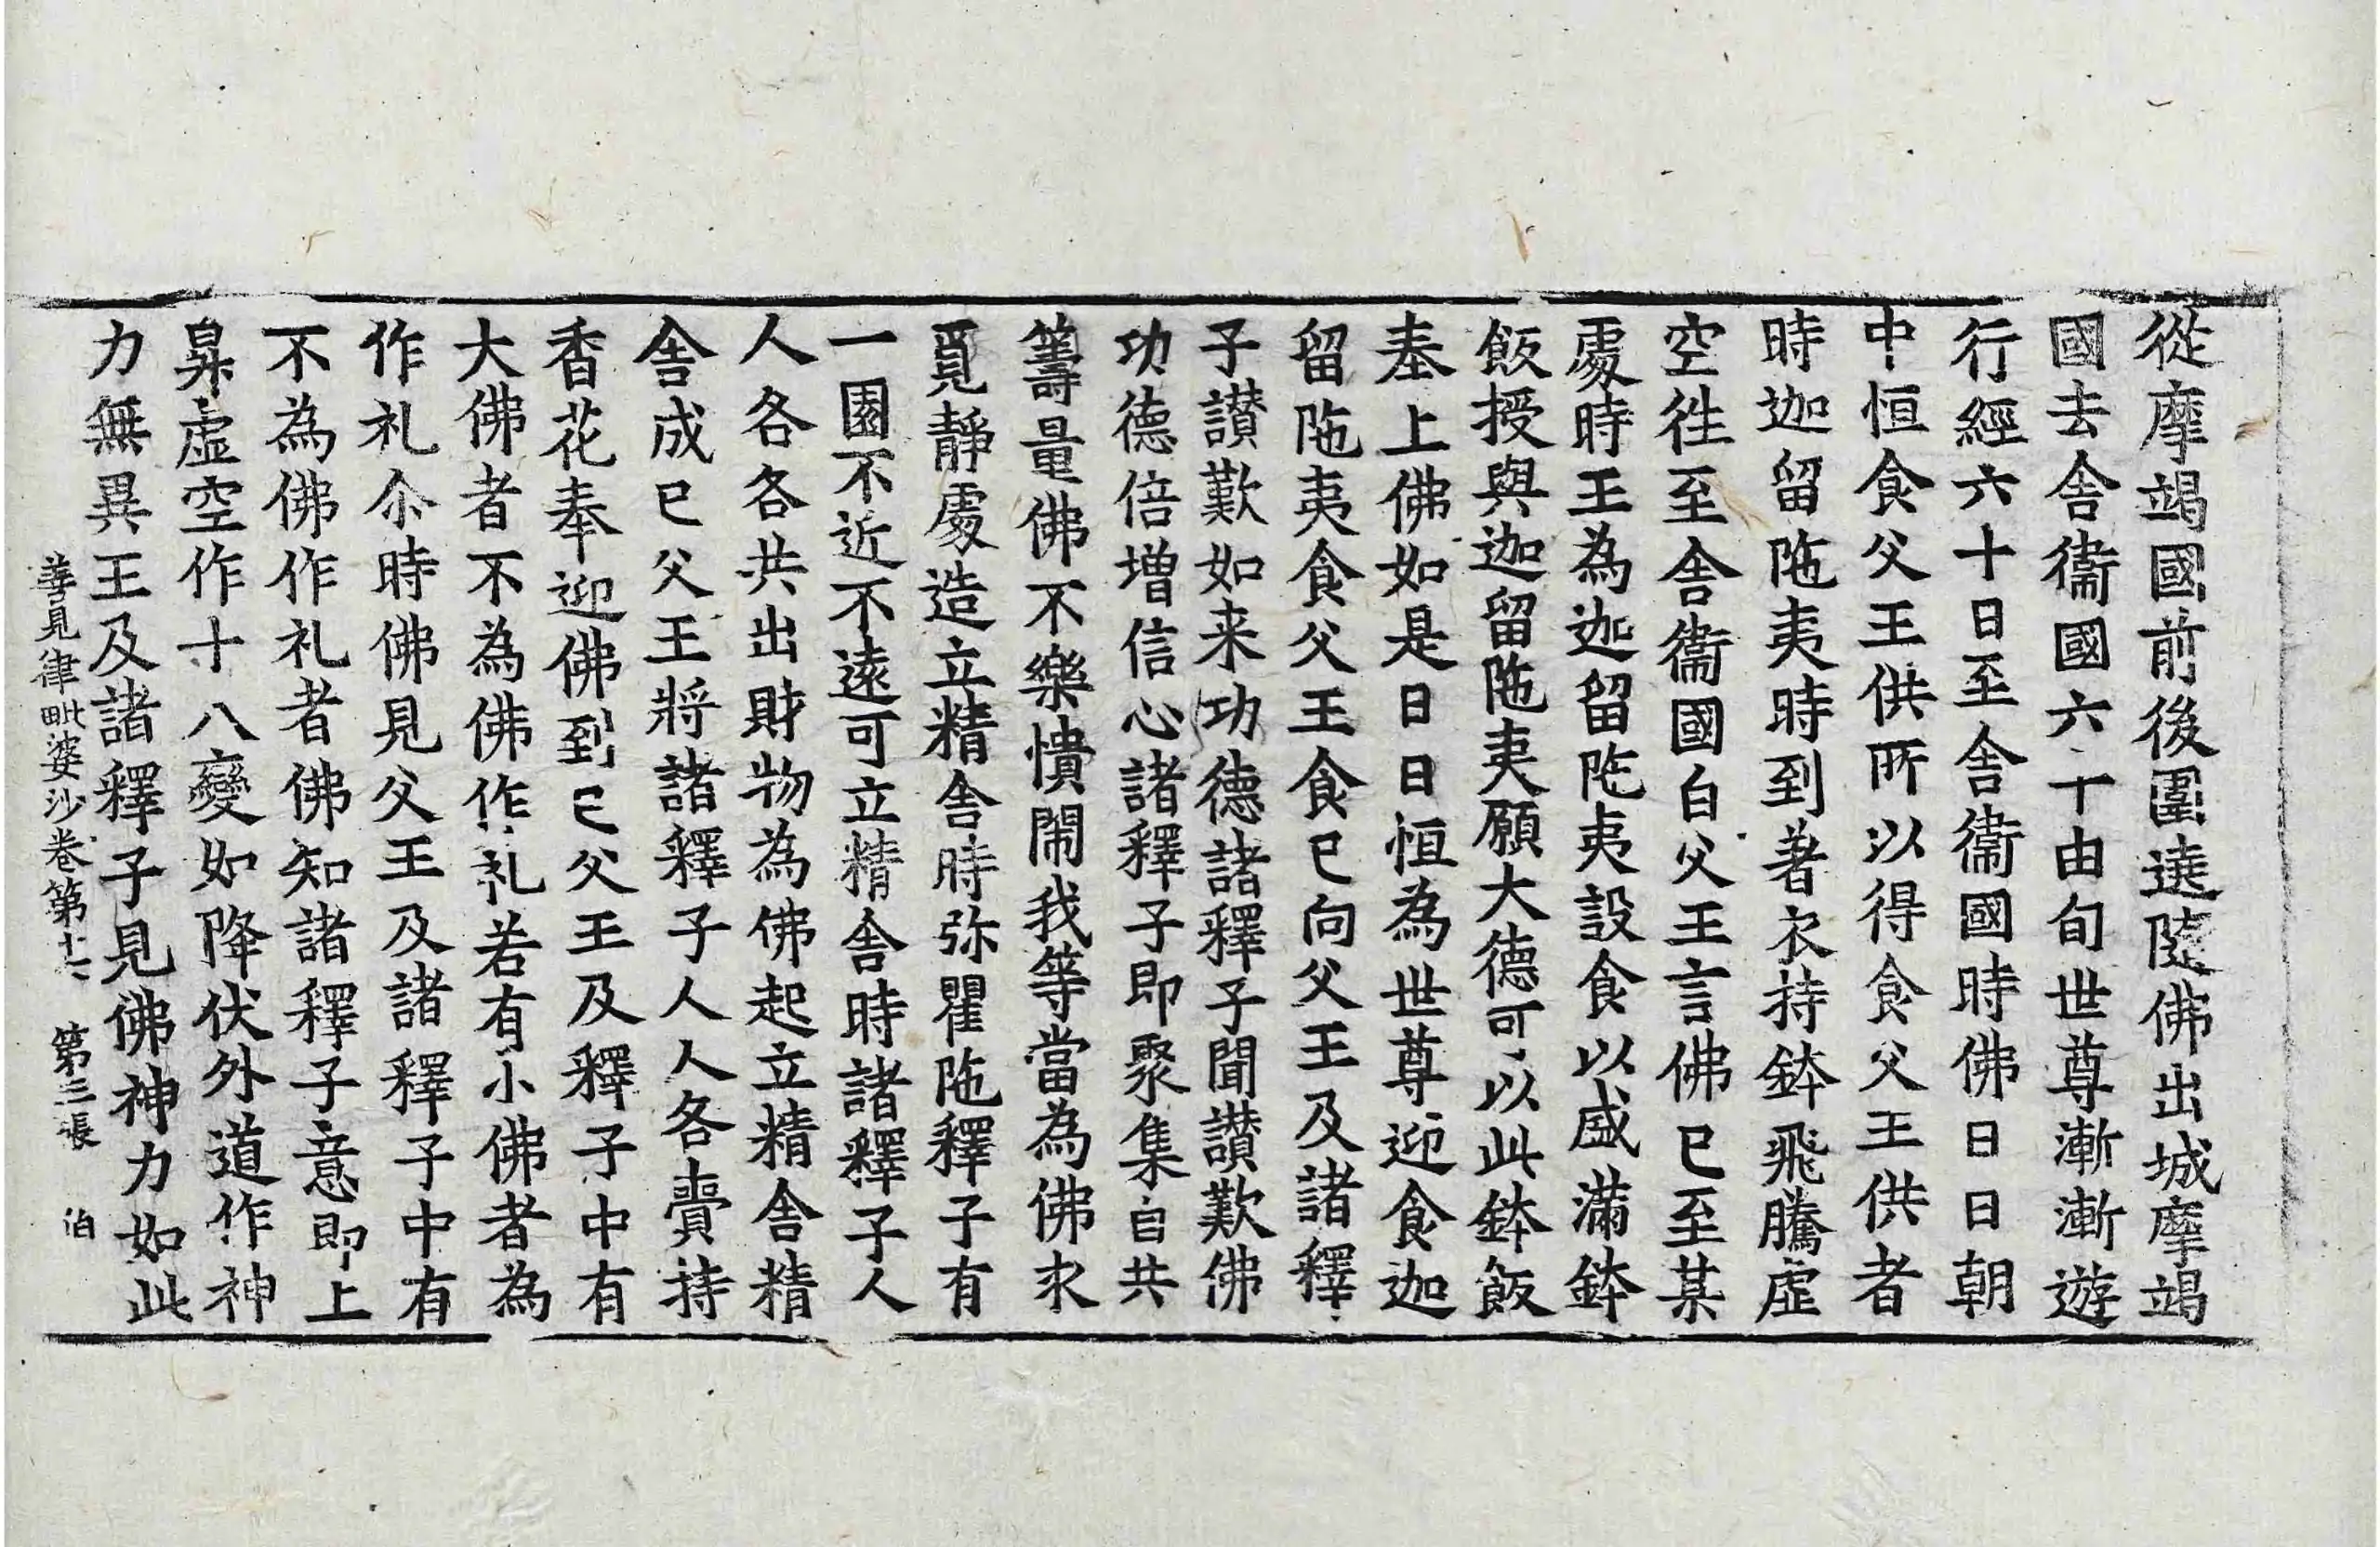 從摩竭國前後圍遶隨佛出城摩竭
國去舍衞國六十由旬世尊漸漸遊
行經六十日至舍衞國時佛日日朝
中恒食父王供所以得食父王供者
時迦留陁夷時到著衣持鉢飛騰虛
空徃至舍衞國白父王言佛已至某
處時王為迦留陁夷設食以盛滿鉢
飯授與迦留陁夷願大德可以此鉢飯
奉上佛如是日日恒為世尊迎食迦
留陁夷食父王食已向父王及諸釋
子讃歎如来功德諸釋子聞讃歎佛
功德倍增信心諸釋子即聚集自共
籌量佛不樂憒閙我等當為佛求
覓靜處造立精舍時弥瞿陁釋子有
一園不近不遠可立精舍時諸釋子人
人各各共出財物為佛起立精舍精
舍成已父王將諸釋子人人各賷持
香花奉迎佛到已父王及釋子中有
大佛者不為佛作礼若有小佛者為
作礼尒時佛見父王及諸釋子中有
不為佛作礼者佛知諸釋子意即上
昇虛空作十八變如降伏外道作神
力無異王及諸釋子見佛神力如此
善見律毗婆沙卷第十七 第三張 伯